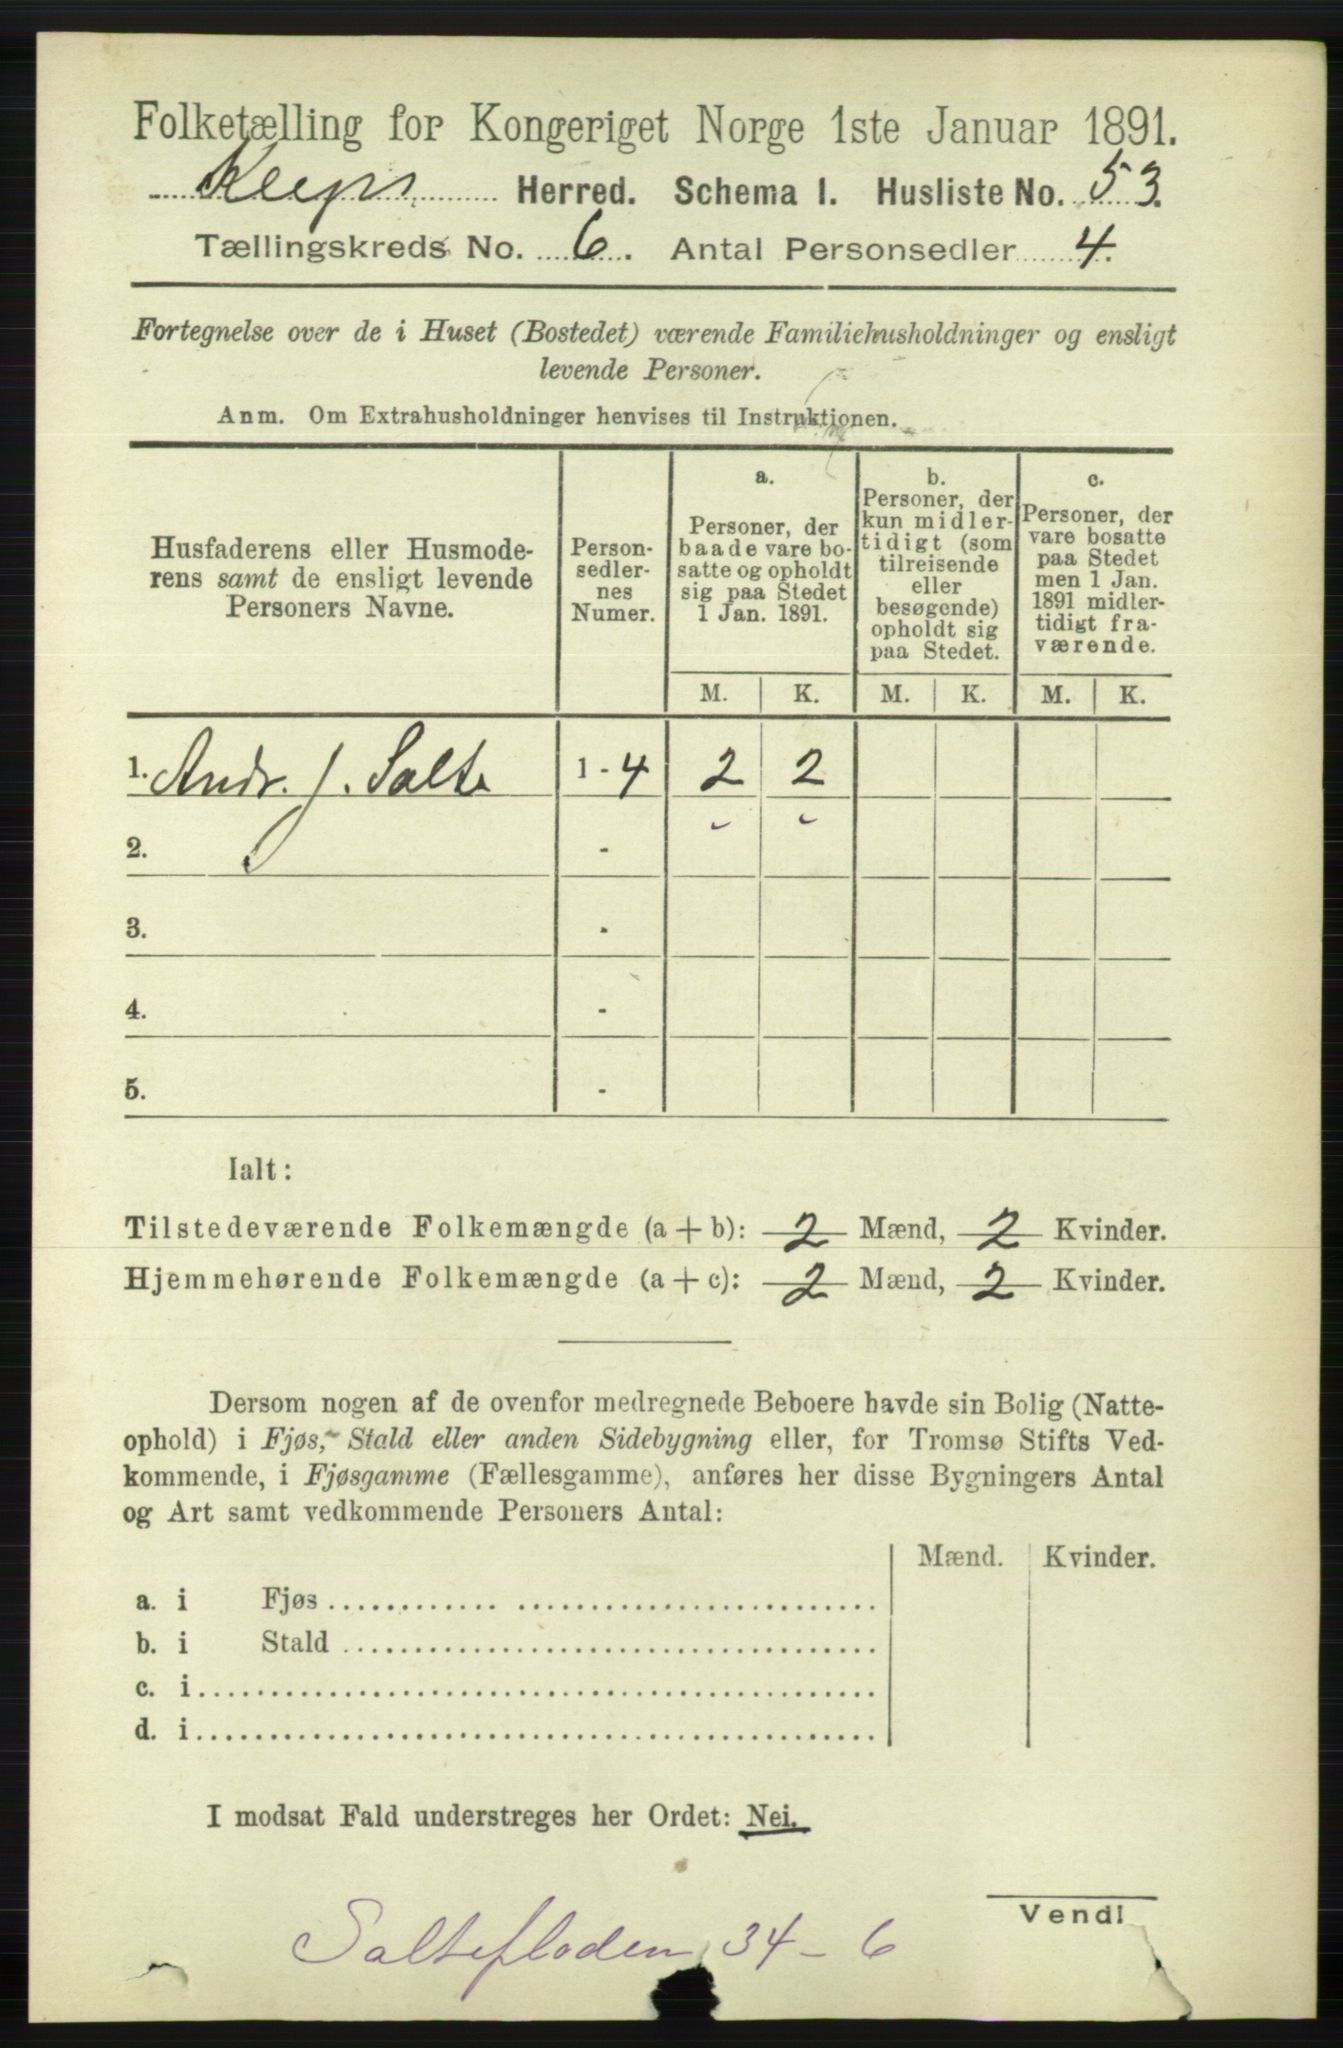 Folketælling for Kongeriget Norge 1ste Januar 1891.
Klepp Herred. Schema 1. Husliste No. 53.
Tællingskreds No. 6. Antal Personsedler 4.
Fortegnelse over de i Huset (Bostedet) værende Familiehusholdninger og ensligt
levende Personer.
Anm. Om Extrahusholdninger henvises til Instruktionen.
Husfaderens eller Husmode-
rens samt de ensligt levende
Personers Navne.
Person-
sedler-
nes
Numer.
a.
Personer, der
baade vare bo-
satte og opholdt
sig paa Stedet
1 Jan. 1891.
b.
Personer, der
kun midler-
tidigt (som
tilreisende
eller
besøgende)
opholdt sig
paa Stedet.
c.
Personer, der
vare bosatte
paa Stedet
men 1 Jan.
1891 midler-
tidigt fra-
værende.
M. K. M. K. M. K.
1. Andr. J. Salte 1 - 4 2 2
2. -
3. -
4. -
5. -
Ialt:
Tilstedeværende Folkemængde (a + b): 2 Mænd, 2 Kvinder.
Hjemmehørende Folkemængde (a + c): 2 Mænd, 2 Kvinder.
Dersom nogen af de ovenfor medregnede Beboere havde sin Bolig (Natte-
ophold) i Fjøs, Stald eller anden Sidebygning eller, for Tromsø Stifts Ved-
kommende, i Fjøsgamme (Fællesgamme), anføres her disse Bygningers Antal
og Art samt vedkommende Personers Antal:
Mænd. Kvinder.
a. i Fjøs
b. i Stald
c. i
d. i
I modsat Fald understreges her Ordet: Nei.
Vend!
Saltefloden 34 - 6